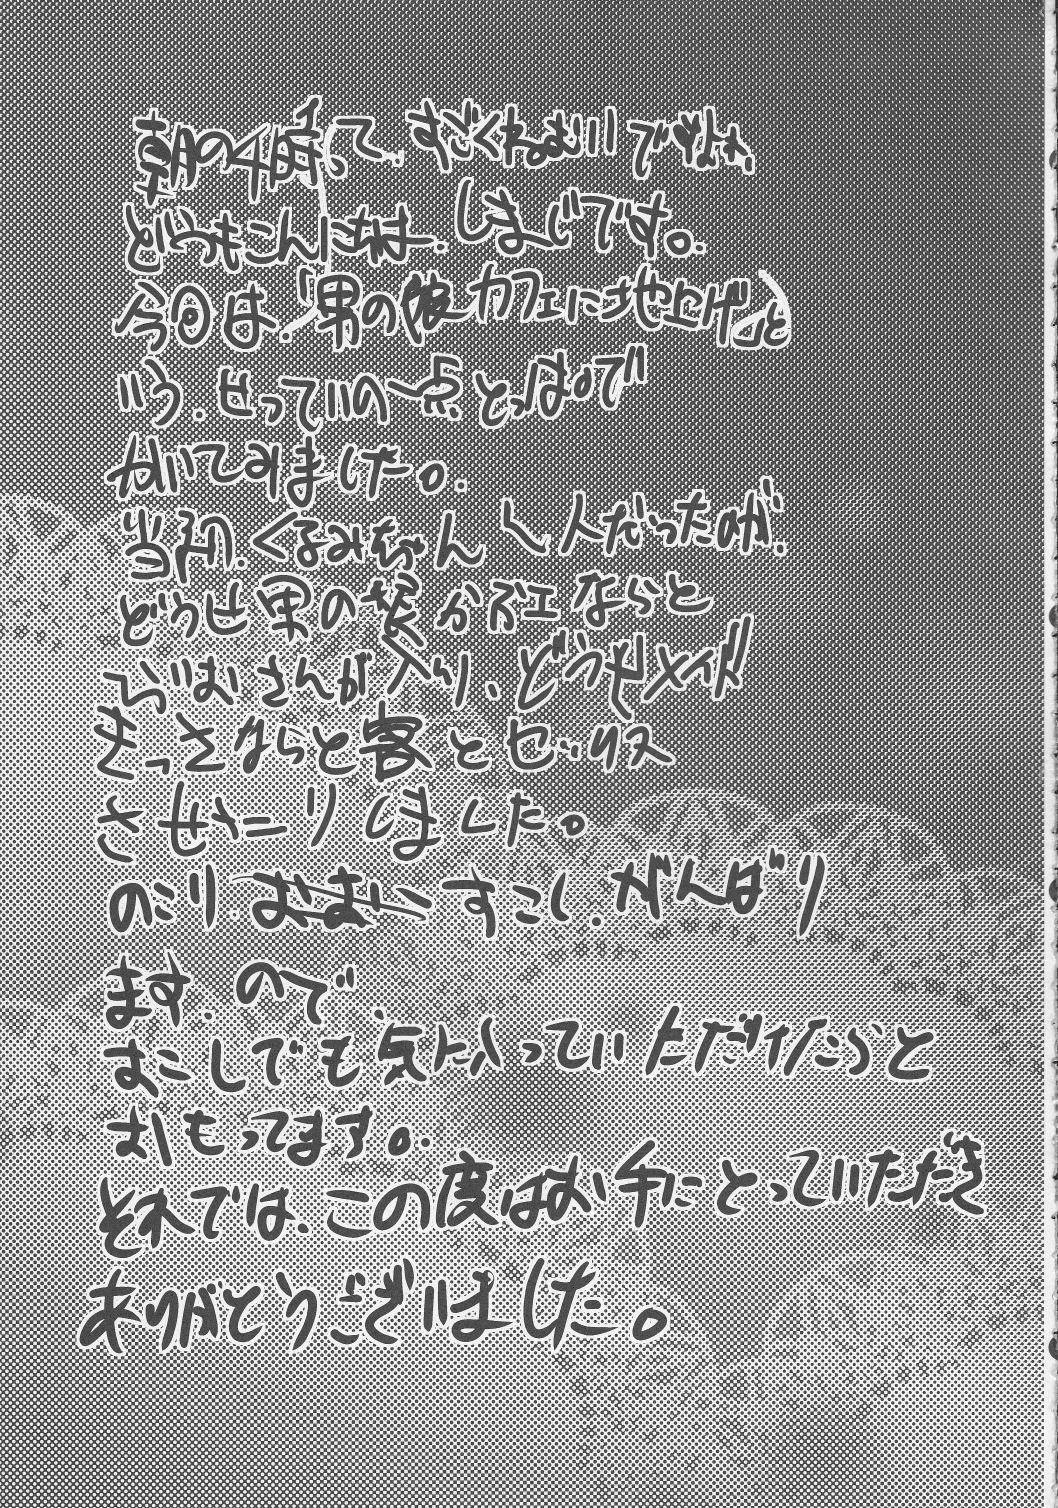 朝の4時って、すごくねむいですよね、
どうもこんにちは、しまじです。
今回は、「男の娘カフェに地上げ」と
いう、せっていの一点とっぱで
かいてみました。
当初、くるみちゃん1人だったのが、
どうせ男の娘かふェならと
おさんが入り、どうせメイド
きっさならと客とセックス
させたりしました。
のこりすこし、がんばり
ます、ので、
すこしでも気に入っていただけたらと
おもってます。
それでは、この度はお手にとっていただき
ありがとうございました。